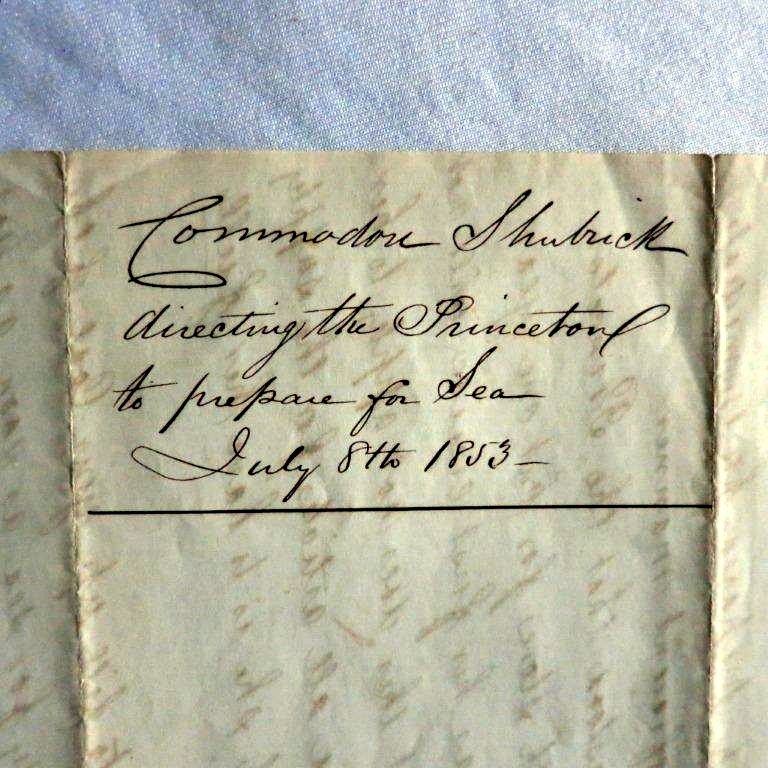 Commodore Shubrick
directing the Princeton
to prepare for Sea
July 8th 1853-